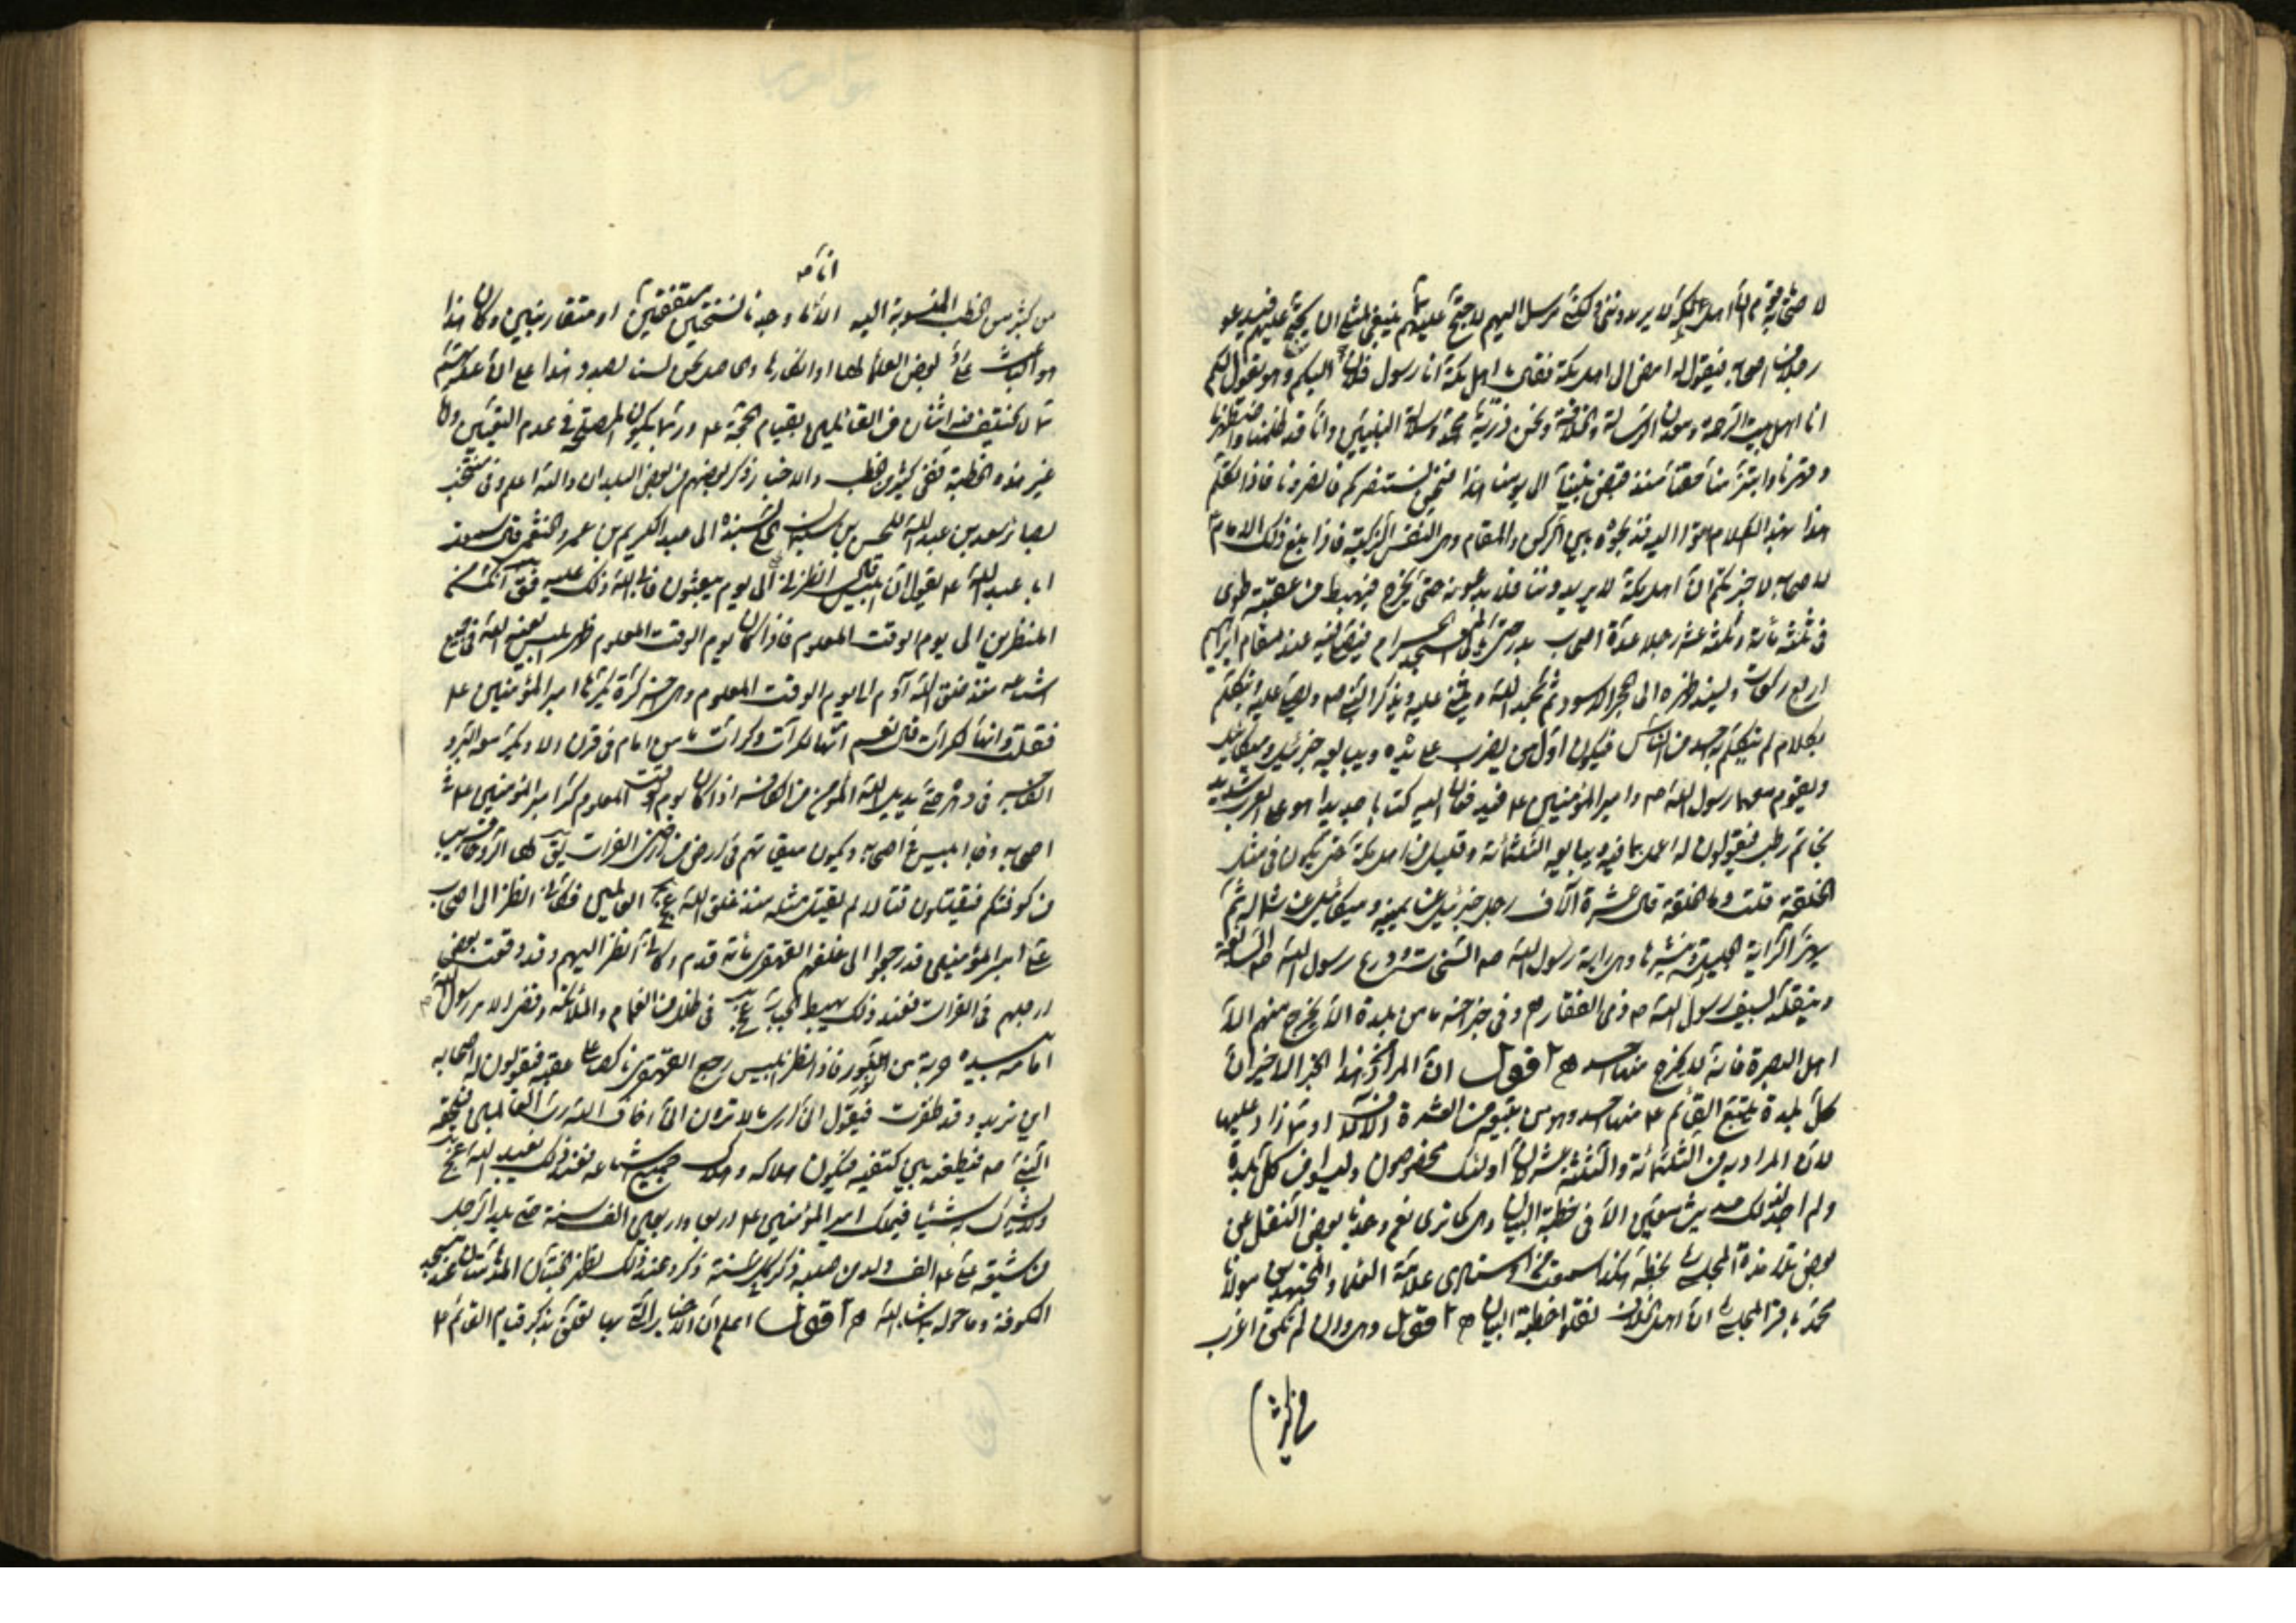 لاصحابه يا قوم ان اهل مكة لا يريدونني ولكني مرسل اليهم لاحتج عليهم بما ينبغي لمثلي ان يحتج عليهم فيدعو
رجلا من اصحابه فيقول له امض الى اهل مكة فقل يا اهل مكة انا رسول فلان اليكم وهو يقول لكم
انا اهل بيت الرحمة ومعدن الرسالة والخلافة ونحن ذرية محمد وسلالة النبيين وانا قد ظلمنا واضطهدنا
وقهرنا وابتز منا حقنا منذ قبض نبينا الى يومنا هذا فنحن نستنصركم فانصرونا فاذا تكلم
هذا بهذا الكلام اتوا اليه فذبحوه بين الركن والمقام وهي النفس الزكية فاذا بلغ ذلك الامام
لاصحابه الا اخبرتكم ان اهل مكة لا يريدوننا فلا يدعونه حتى يخرج فيهبط من عقبة طوى
في ثلثمائة وثلثة عشر رجلا عدة اصحاب بدر حتى ياتي المسجد الحرام فيصلي فيه عند مقام ابراهيم
اربع ركعات ويسند ظهره الى الحجر الاسود ثم يحمد الله ويثني عليه ويذكر النبي ص ويصلي عليه ويتكلم
بكلام لم يتكلم به احد من الناس فيكون اول من يضرب على يده ويبايعه جبرئيل وميكائيل
ويقوم معهما رسول الله ص وامير المؤمنين ع فيدفعان اليه كتابا جديدا هو على العرب شديد
بخاتم رطب فيقولون له اعمل بما فيه ويبايعه الثلثمائة وقليل من اهل مكة حتى يكون في مثل
الحلقة قلت وما الحلقة قال عشرة آلاف رجل جبرئيل عن يمينه وميكائيل عن شماله ثم
يهز الراية الجلية وينشرها وهي راية رسول الله ص السحاب ودرع رسول الله ص السابغة
ويتقلد بسيف رسول الله ص ذي الفقار وفي خبر آخر ما من بلدة الا يخرج منهم الا
اهل البصرة فانه لا يخرج منها احد اقول ان المراد بهذا الخبر الاخير ان
كل بلدة يتبع القائم ع منها احد وهو من بقية من العشرة الآلاف او ما زاد عليها
لا ان المراد به من الثلثمائة والثلثة عشر لان اولئك مخصوصون وليسوا من كل بلدة
ولم اجد لذلك حديث تعيين الا في خطبة البيان وهي كما ترى نعم وجدنا بعض النقل عن
بعض تلامذة المجلسي بخطه هكذا سمعت من استادي علامة العلماء والمجتهدين مولانا
محمد باقر المجلسي ان اهل الخلاف نقلوا خطبة البيان اقول وهي وان لم تكن اغرب
من كثير
من كثير من الخطب المنسوبة اليه الا انا ما وجدنا نسختين متفقتين او متقاربتين وكان هذا
هو الباعث على رد بعض العلماء لها او انكارها وعلى كل نحن لسنا بصدد هذا على ان عدتهم
مما لا يختلف فيه اثنان من القائلين بقيام الحجة ع وربما يكون المصلحة في عدم التعيين ولنا
غير هذه الخطبة ففي كثير من الخطب والاخبار ذكر بعضهم من بعض البلدان والله اعلم وفي منتخب
بصائر سعد بن عبدالله للحسن بن سليمان الحلي بسنده الى عبد الكريم بن عمرو الخثعمي قال سمعت
ابا عبدالله ع يقول ان ابليس قال انظرني الى يوم يبعثون فابى الله ذلك عليه فقال انك من
المنظرين الى يوم الوقت المعلوم فاذا كان يوم الوقت المعلوم ظهر ابليس لعنه الله في جميع
اشياعه منذ خلق الله آدم الى يوم الوقت المعلوم وهي آخر كرة يكرها امير المؤمنين ع
فقلت وانها لكرات قال نعم انها لكرات وكرات ما من امام في قرن الا ويكر معه البر و
الفاجر في دهره حتى يديل الله المؤمن من الكافر فاذا كان يوم الوقت المعلوم كر امير المؤمنين ع في
اصحابه وجاء ابليس في اصحابه ويكون ميقاتهم في ارض من اراضي الفرات يقال لها الروحاء قريب
من كوفتكم فيقتتلون قتالا لم يقتتل مثله منذ خلق الله عز وجل العالمين فكاني انظر الى اصحاب
علي امير المؤمنين قد رجعوا الى خلفهم القهقرى مائة قدم وكاني انظر اليهم وقد وقعت بعض
ارجلهم في الفرات فعند ذلك يهبط الجبار عز وجل في ظلل من الغمام والملائكة وقضي الامر رسول الله ص
امامه بيده حربة من نور فاذا نظر اليه ابليس رجع القهقرى ناكصا على عقبيه فيقولون له اصحابه
اين تريد وقد ظفرت فيقول اني ارى ما لا ترون اني اخاف الله رب العالمين فيلحقه
النبي ص فيطعنه بين كتفيه فيكون هلاكه وهلاك جميع اشياعه فعند ذلك يعبد الله عز وجل
ولا يشرك به شيئا فيملك امير المؤمنين ع اربعا واربعين الف سنة حتى يلد الرجل
من شيعة علي ع الف ولد من صلبه ذكر كل سنة ذكر وعند ذلك تظهر الجنتان المدهامتان عند مسجد
الكوفة وما حوله بما شاء الله اقول اعلم ان الاخبار التي بها تعلق بذكر قيام القائم ع